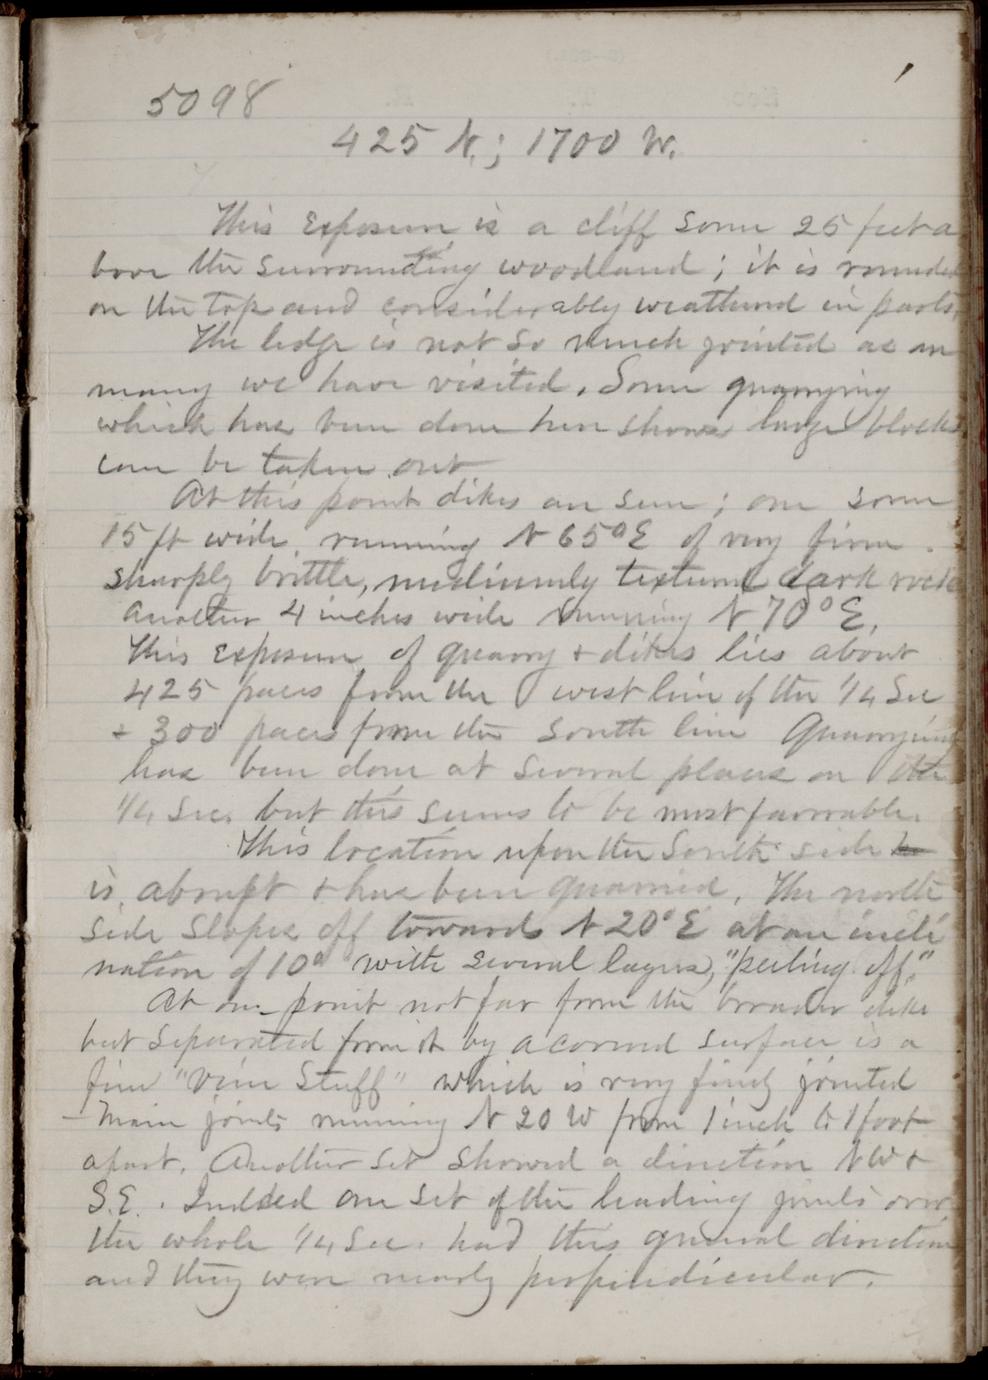 5098
425 N.; 1700 W.
This exposure is a cliff some 25 feet a
bove the surrounding woodland; it is rounded
on the top and considerably weathered in parts.
The ledge is not so much jointed as in
many we have visited. Some quarrying
which has been done here shows large blocks
can be taken out
At this point dikes are seen; one some
15 ft wide, running N 65° E of very firm
sharply brittle, mediumly textured dark rock
another 4 inches wide running N 70° E.
This exposure of quarry + dikes lies about
425 paces from the west line of the 1/4 Sec
+ 300 paces from the south line Quarrying
has been done at several places on the
1/4 Sec. but this seems to be most favorable.
This location upon the South side
is abrupt + has been quarried. The north
side slopes off towards N 20° E at an incli
nation of 10° with several layers, "peeling off."
At one point not far from the broader dike
but separated from it by a covered surface is a
fine "Vein Stuff" which is very finely jointed
- Main joints running N 20 W from 1 inch to 1 foot
apart. Another set showed a direction NW +
S.E. Indeed one set of the leading joints over
the whole 1/4 Sec. had this general direction
and they were nearly perpendicular.